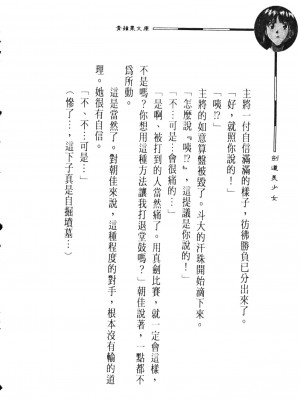 青蘋果文庫
劍道美少女
主將一付自信滿滿的樣子，彷彿勝負已分出來了。
「好，就照你說的！」
「咦!?」
主將的如意算盤被毀了。斗大的汗珠開始滴下來。
「怎麼說『咦!?』，這提議是你說的！」
「不…可是…會很痛的…」
「是啊、被打到的人當然痛了。用真劍比賽，就一定會這樣，
不是嗎？你想用這種方法讓我打退堂鼓嗎？」朝佳說著，一點都不
爲所動。
這是當然了。對朝佳來說，這種程度的對手，根本沒有輸的道
理。她很有自信。
「不、不…可是…」
（慘了…，這下子真是自掘墳墓…）